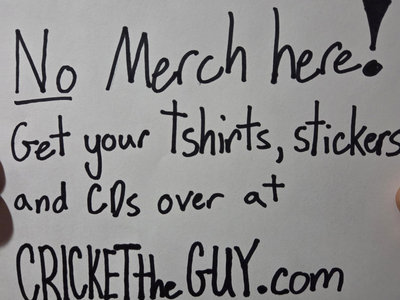 No Merch here!
Get your Tshirts, stickers
and CDs over at
CRICKETtheGUY.com